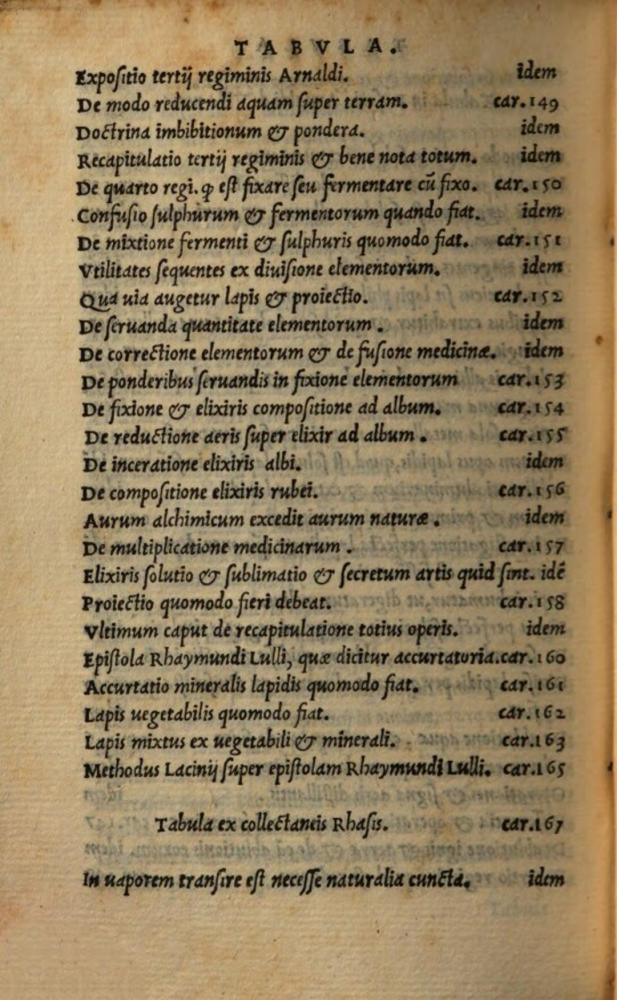 TABVLA.
Expoſitio tertij regiminis Arnaldi. idem
De modo reducendi aquam ſuper terram. car.149
Doctrina imbibitionum & pondera. idem
Recapitulatio tertij regiminis & bene nota totum. idem
De quarto regi. ꝙ eſt fixare ſeu fermentare cũ fixo. car.150
Confuſio ſulphurum & fermentorum quando fiat. idem
De mixtione fermenti & ſulphuris quomodo fiat. car.151
Vtilitates ſequentes ex diuiſione elementorum. idem
Qua uia augetur lapis & proiectio. car.152
De ſeruanda quantitate elementorum. idem
De correctione elementorum & de fuſione medicinæ. idem
De ponderibus ſeruandis in fixione elementorum car.153
De fixione & elixiris compoſitione ad album. car.154
De reductione aeris ſuper elixir ad album. car.155
De inceratione elixiris albi. idem
De compoſitione elixiris rubei. car.156
Aurum alchimicum excedit aurum naturæ. idem
De multiplicatione medicinarum. car.157
Elixiris ſolutio & ſublimatio & ſecretum artis quid ſint. idẽ
Proiectio quomodo fieri debeat. car.158
Vltimum caput de recapitulatione totius operis. idem
Epiſtola Rhaymundi Lulli, quæ dicitur accurtatoria. car.160
Accurtatio mineralis lapidis quomodo fiat. car.161
Lapis uegetabilis quomodo fiat. car.162
Lapis mixtus ex uegetabili & minerali. car.163
Methodus Lacinij ſuper epiſtolam Rhaymundi Lulli. car.165
Tabula ex collectaneis Rhaſis. car.167
In uaporem tranſire eſt neceſſe naturalia cuncta. idem